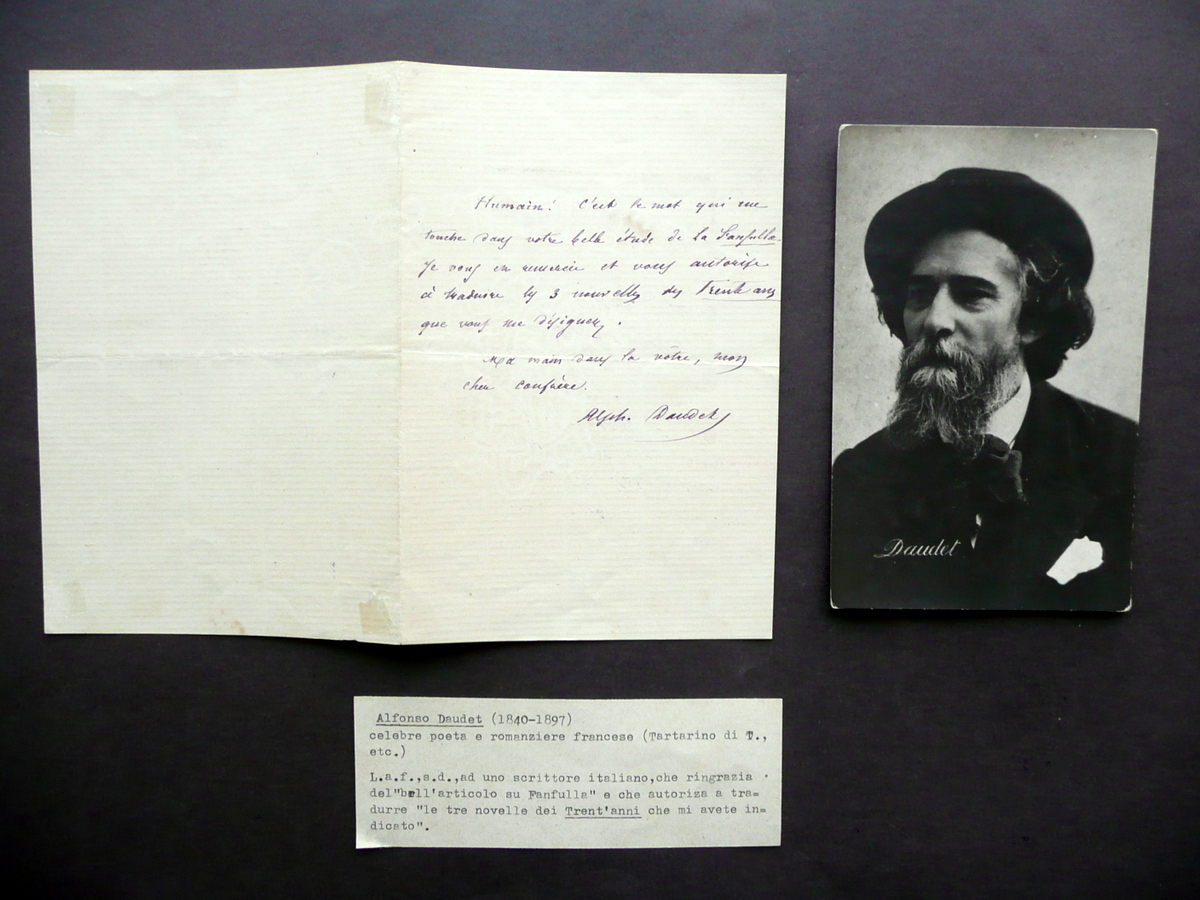 Humain! C'est le mot qui me
touche dans votre belle étude de la Fanfulla.
Je vous en remercie et vous autorise
à traduire les 3 nouvelles des Trente ans
que vous me désignez.
Ma main dans la vôtre, mon
cher confrère.
Alph. Daudet
Daudet
Alfonso Daudet (1840-1897)
celebre poeta e romanziere francese (Tartarino di T.,
etc.)
L.a.f.,s.d.,ad uno scrittore italiano,che ringrazia
del"bell'articolo su Fanfulla" e che autoriza a tra=
durre "le tre novelle dei Trent'anni che mi avete in=
dicato".